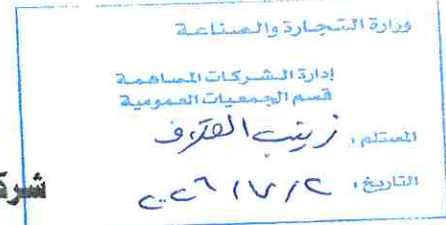 وزارة التجارة والصناعة
إدارة الشركات المساهمة
قسم الجمعيات العمومية
المستلم، زينب
التاريخ، ٢٠٢٦/٧/٢
شركة